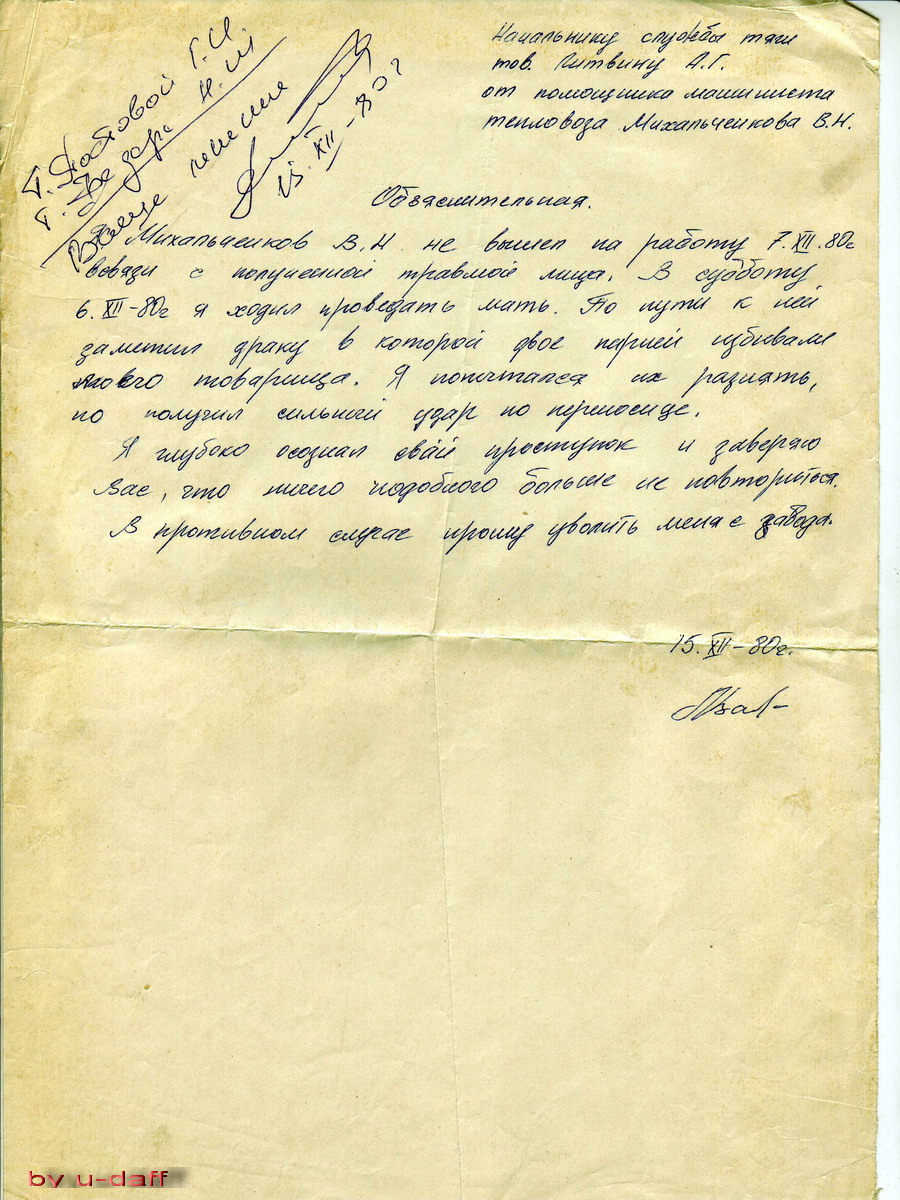 Т. Лобовой Г.И.
Т.
Ваше мнение
15.XII-80г
Начальнику службы тяги
тов. Литвину А.Г.
от помощника машиниста
тепловоза Михальченкова В.Н.
Объяснительная.
Я Михальченков В.Н не вышел на работу 7.XII.80г
всвязи с полученной травмой лица. В субботу
6.XII-80г я ходил проведать мать. По пути к ней
заметил драку в которой двое парней избивали
моего товарища. Я попытался их разнять,
но получил сильный удар по переносице.
Я глубоко осознал свой проступок и заверяю
Вас, что ничего подобного больше не повториться.
В противном случае прошу уволить меня с завода.
15.XII-80г.
by u-daff